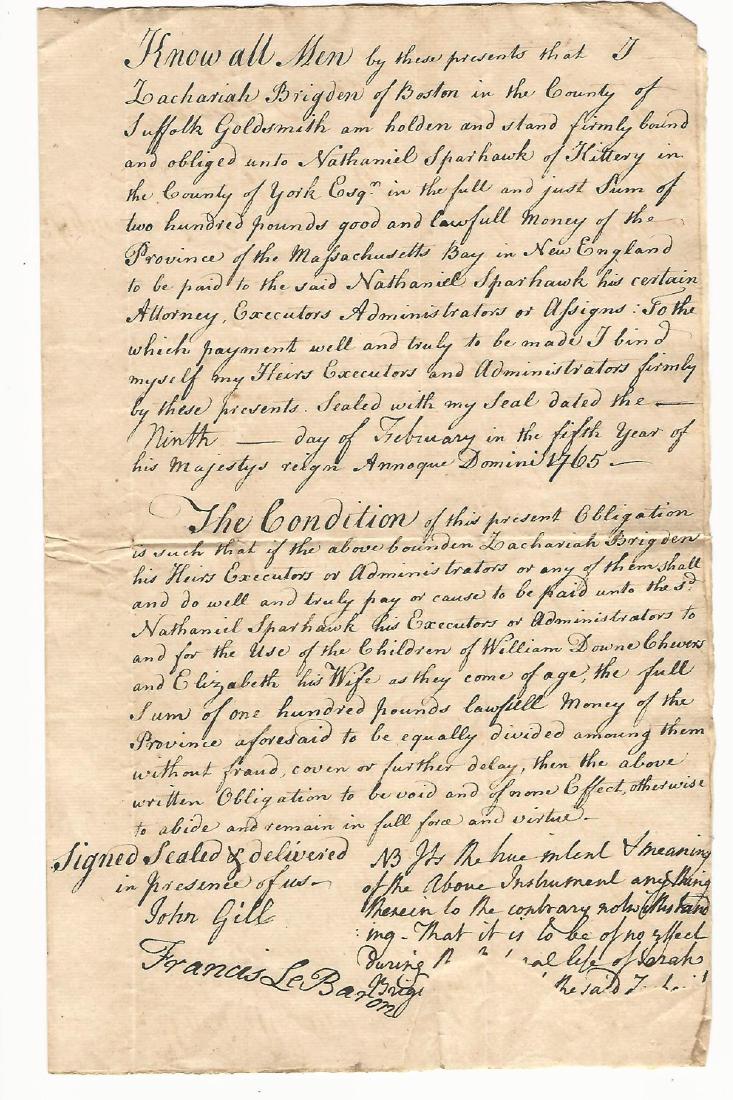 Know all Men by these presents that I
Zachariah Brigden of Boston in the County of
Suffolk Goldsmith am holden and stand firmly bound
and obliged unto Nathaniel Sparhawk of Kittery in
the County of York Esqr in the full and just Sum of
two hundred pounds good and lawfull Money of the
Province of the Massachusetts Bay in New England
to be paid to the said Nathaniel Sparhawk his certain
Attorney, Executors Administrators or Assigns: To the
which payment well and truly to be made I bind
myself my Heirs Executors and Administrators firmly
by these presents. Sealed with my Seal dated the —
Ninth — day of February in the fifth Year of
his Majestys reign Annoque Domini 1765 —
The Condition of this present Obligation
is such that if the above bounden Zachariah Brigden
his Heirs Executors or Administrators or any of them shall
and do well and truly pay or cause to be paid unto the sd
Nathaniel Sparhawk his Executors or Administrators to
and for the Use of the Children of William Downe Chevers
and Elizabeth his Wife as they come of age, the full
Sum of one hundred pounds lawfull Money of the
Province aforesaid to be equally divided among them
without fraud, coven or further delay, then the above
written Obligation to be void and of none Effect, otherwise
to abide and remain in full force and virtue. —
Signed Sealed & delivered
in presence of us —
John Gill
Francis LeBaron
NB Its the true intent & meaning
of the Above Instrument any thing
therein to the contrary notwithstand
:ing - That it is to be of no effect
During life of Sarah
the said